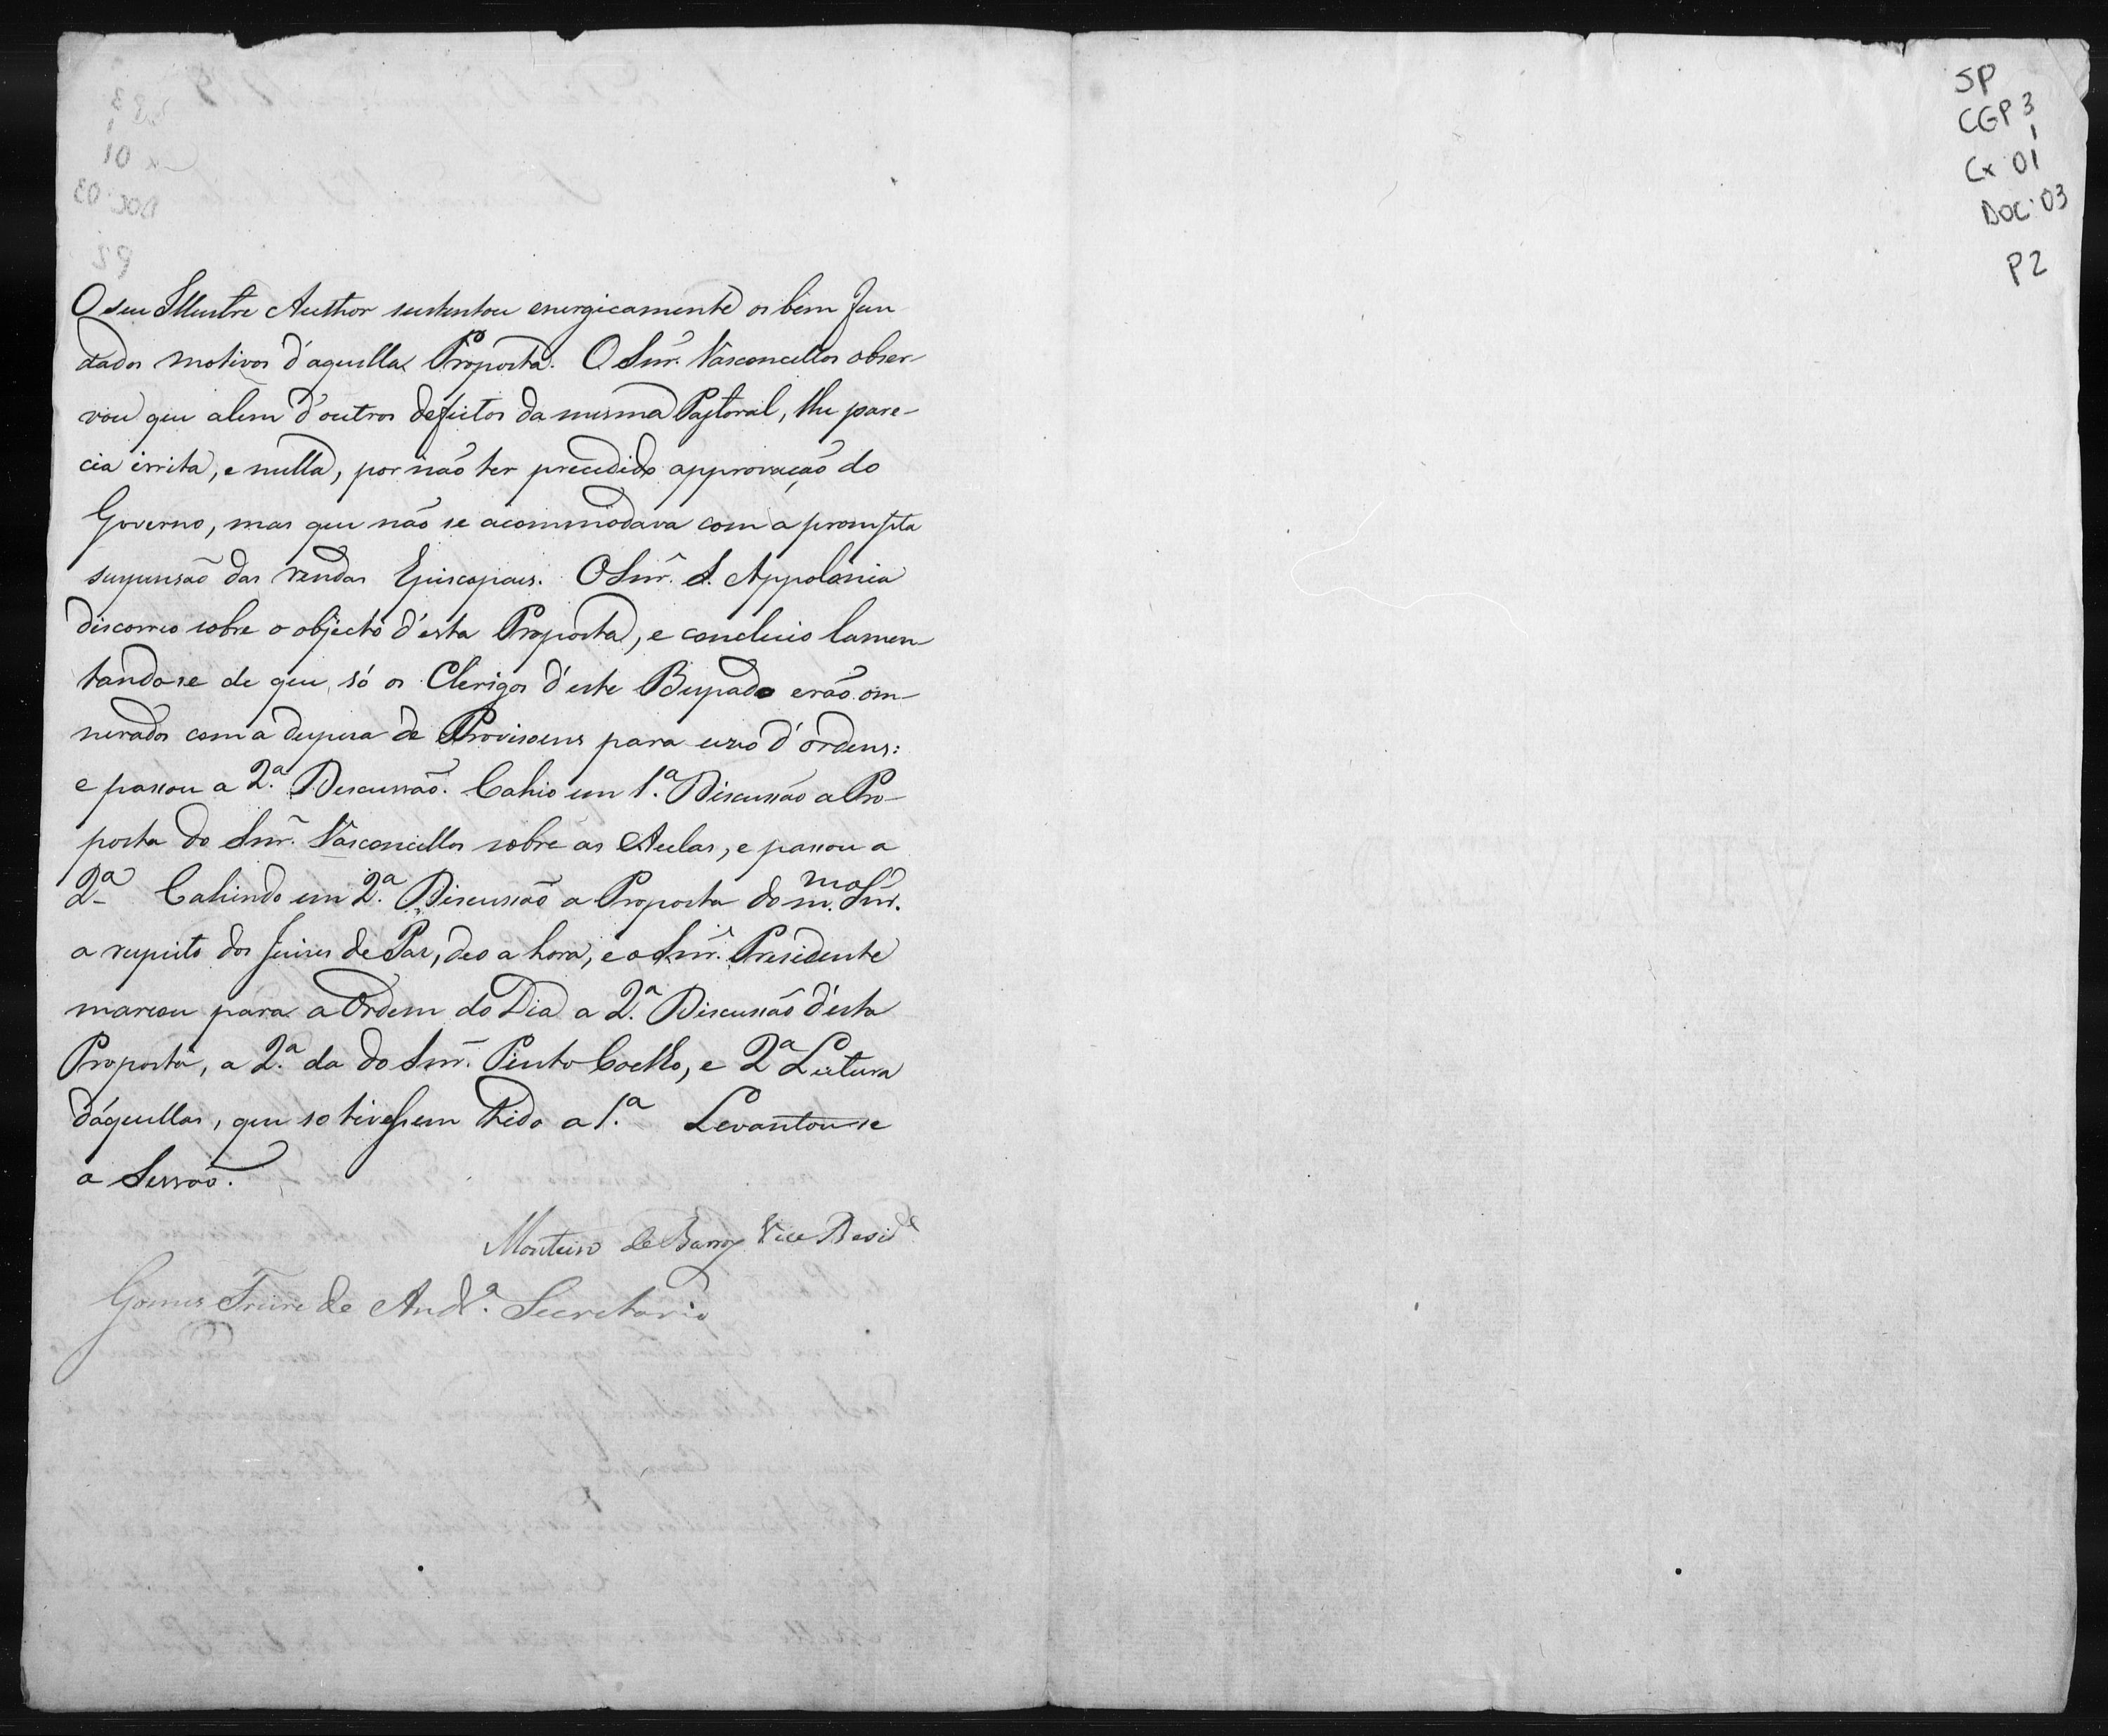 SP
CGP 3
1
Cx 01
DOC. 03
P2
O seu Illustre Author sustentou energicamente os bem fun
dados motivos d'aquella Proposta. O Snr. Vasconcellos obser-
vou que alem d'outros defeitos da mesma Pastoral, lhe pare-
cia irrita, e nulla, por não ter precedido approvação do
Governo, mas que não se acommodava com a prompta
suspensão das rendas Episcopaes. O Snr. S. Appolonia
discorreo sobre o objecto d'esta Proposta, e concluio lamen
tando-se de que só os Clerigos d'este Bispado erão on-
nerados com a despesa de Provisoens para uso d'ordens:
e passou a 2.ª Discussão. Cahio em 1.ª Discussão a Pro-
posta do Snr. Vasconcellos sobre as Aulas, e passou a
2ª Cahindo em 2.ª Discussão a Proposta do m.mo Snr.
a respeito dos Juises de Paz, deo a hora, e o Snr. Presidente
marcou para a Ordem do Dia a 2.ª Discussão d'esta
Proposta, a 2.ª da do Snr. Pinto Coelho, e 2ª Leitura
d'aquellas, que so tivessem tido a 1.ª Levantou-se
a Sessão.
Monteiro de Barros Vice Presid.e
Gomes Freire de Andr.ª Secretario